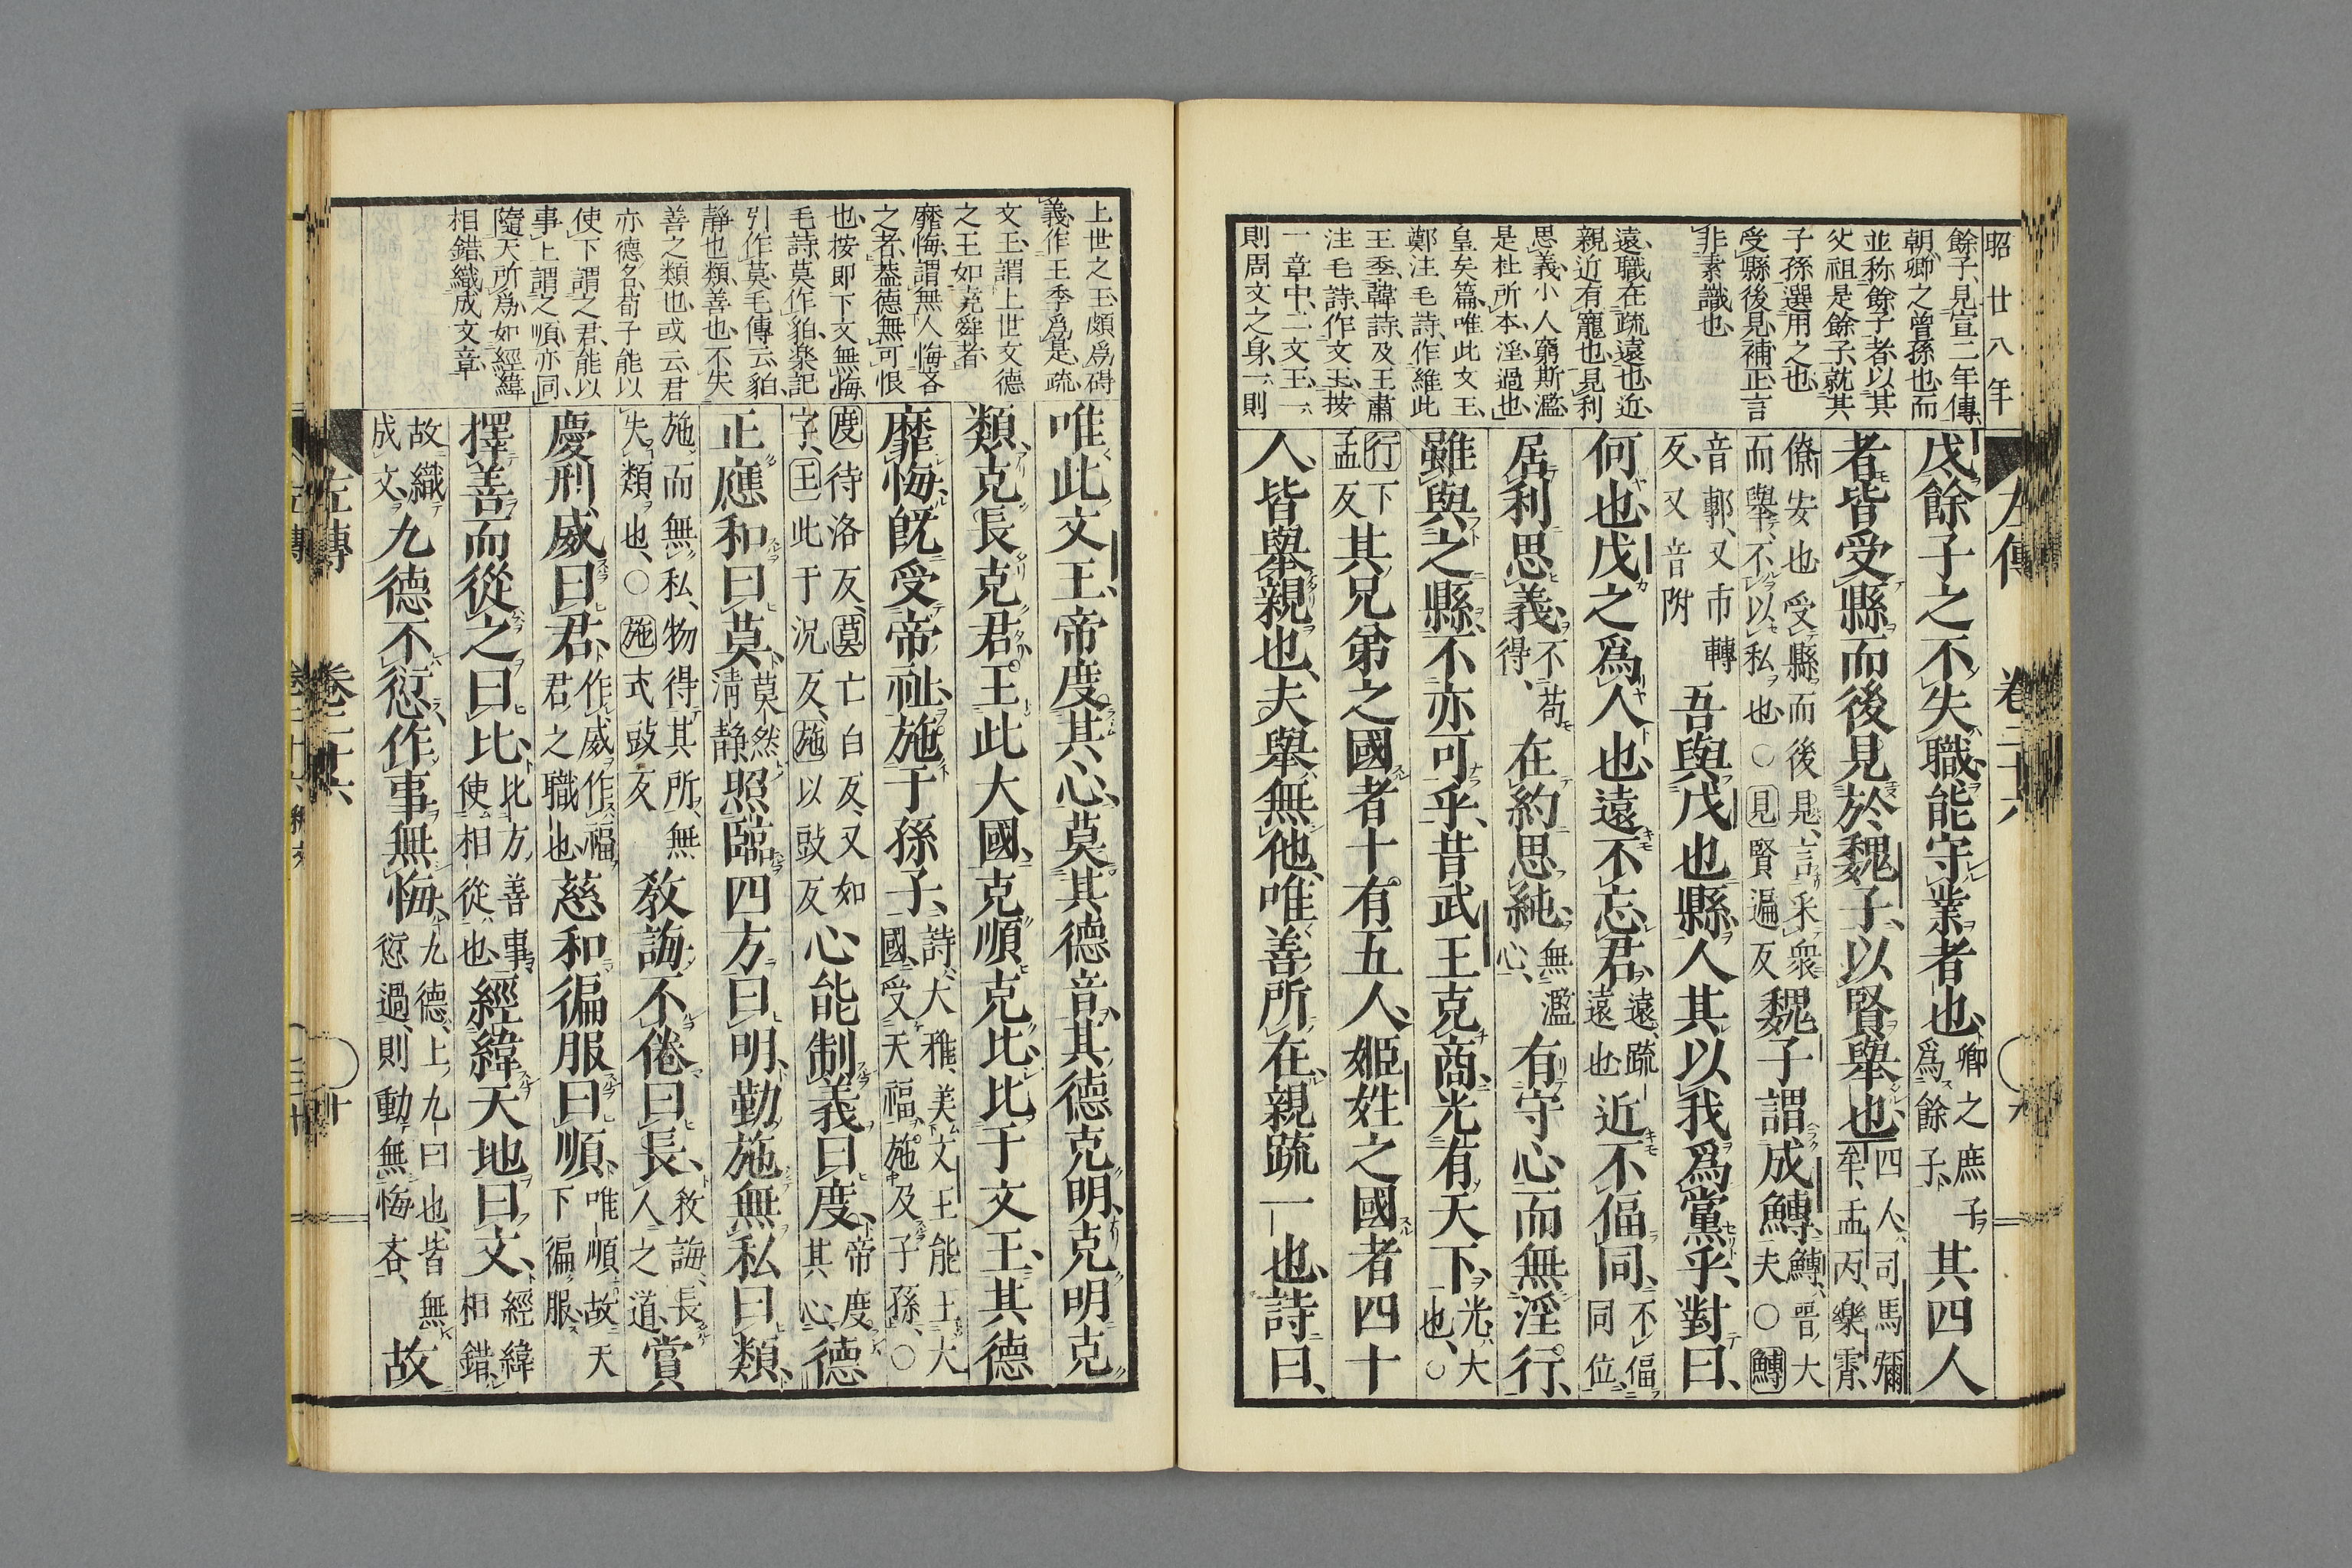 昭廿八年
餘子、見宣二年傳、
朝卿之曾孫也、而
並称餘子者、以其
父祖是餘子、就其
子孫選用之也、
受縣後見、補正言
非素識也、
遠、職在疏遠也、近、
親近有寵也、見利
思義、小人窮斯濫、
是杜所本、淫、過也、
皇矣篇、唯此文王、
鄭注毛詩、作維此
王季、韓詩及王肅
注毛詩、作文王、按
一章中、一文王、一
則周文之身、一則
戊餘子之不失職、能守業者也、卿之庶子爲餘子、其四人
者皆受縣而後見於魏子、以賢舉也、四人、司馬彌牟、孟丙、樂霄、
僚安也、受縣而後見、言采衆而舉、不以私也、○見賢遍反魏子謂成鱄、鱄、晉大夫、○鱄
音鄟、又市轉反、又音附吾與戊也縣、人其以我爲黨乎、對曰、
何也、戊之爲人也、遠不忘君、遠、疏遠也近不偪同、不偪同位、
居利思義、不苟得、在約思純、無濫心、有守心而無淫行、
雖與之縣、不亦可乎、昔武王克商、光有天下、光、大也、○
行下孟反其兄弟之國者十有五人、姬姓之國者四十
人、皆舉親也、夫舉無他、唯善所在、親疏一也、詩曰、
左傳 卷二十六 九
上世之王、頗爲碍
義、作王季爲是、疏
文王、謂上世文德
之王、如堯舜者、
靡悔、謂無人悔吝
之者、蓋德無可恨
也、按即下文無悔、
毛詩、莫作貊、樂記
引作莫、毛傳云、貊、
靜也、類、善也、不失
善之類也、或云、君
亦德名、荀子、能以
使下謂之君、能以
事上謂之順、亦同、
隨天所爲、如經緯
相錯、織成文章、
唯此文王、帝度其心、莫其德音、其德克明、克明克
類、克長克君、王此大國、克順克比、比于文王、其德
靡悔、既受帝祉、施于孫子、詩大雅、美文王能王大國、受天福、施及子孫、○
度待洛反、莫亡白反、又如字、王此于況反、施以豉反心能制義曰度、帝度其心、德
正應和曰莫、莫然清靜照臨四方曰明、勤施無私曰類、
施而無私、物得其所、無失類也、○施式豉反教誨不倦曰長、教誨、長人之道、賞
慶刑威曰君、作威作福、君之職也、慈和徧服曰順、唯順、故天下徧服、
擇善而從之曰比、比方善事、使相從也、經緯天地曰文、經緯相錯、
故織成文、九德不愆、作事無悔、九德、上九曰也、皆無愆過、則動無悔吝、故
左傳 卷二十六 十